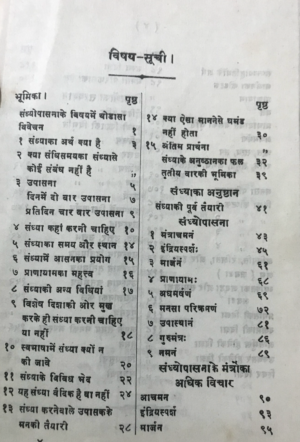 विषय-सूची।
भूमिका। पृष्ठ
संध्योपासनाके विषयमें थोडासा
विवेचन १
१ संध्याका अर्थ क्या है ३
२ क्या संधिसमयका संध्यासे
कोई संबंध नहीं है ५
३ उपासना ५
दिनमें दो बार उपासना ७
प्रतिदिन चार बार उपासना ९
४ संध्या कहां करनी चाहिए १०
५ संध्याका समय और स्थान १४
६ संध्यामें आसनका प्रयोग १५
७ प्राणायामका महत्त्व १६
८ संध्याकी अन्य विधियां १७
९ विशेष दिशाकी ओर मुख
करके ही संध्या करनी चाहिए
या नहीं १८
१० स्वभाषामें संध्या क्यों न
की जावे २०
११ संध्याके विविध भेद २२
१२ यह संध्या वैदिक है या नहीं २४
१३ संध्या करनेवाले उपासकके
मनकी तैयारी २८
पृष्ठ
१४ क्या ऐसा माननेसे घमंड
नहीं होता ३०
१५ अंतिम प्रार्थना ३१
संध्याके अनुष्ठानका फल ३२
तृतीय वारकी भूमिका ३९
संध्याका अनुष्ठान
संध्याकी पूर्व तैयारी ४१
संध्योपासना
१ मंत्राचमनं ४३
२ इंद्रियस्पर्शः ४५
३ मार्जनं ६१
४ प्राणायामः ६८
५ अघमर्षणं ६९
६ मनसा परिक्रमणं ७२
७ उपस्थानं ८१
८ गुरुमंत्रः ८६
९ नमनं ८९
संध्योपासनाके मंत्रोंका
अधिक विचार
आचमन ९०
इंद्रियस्पर्श ९३
मार्जन ९५